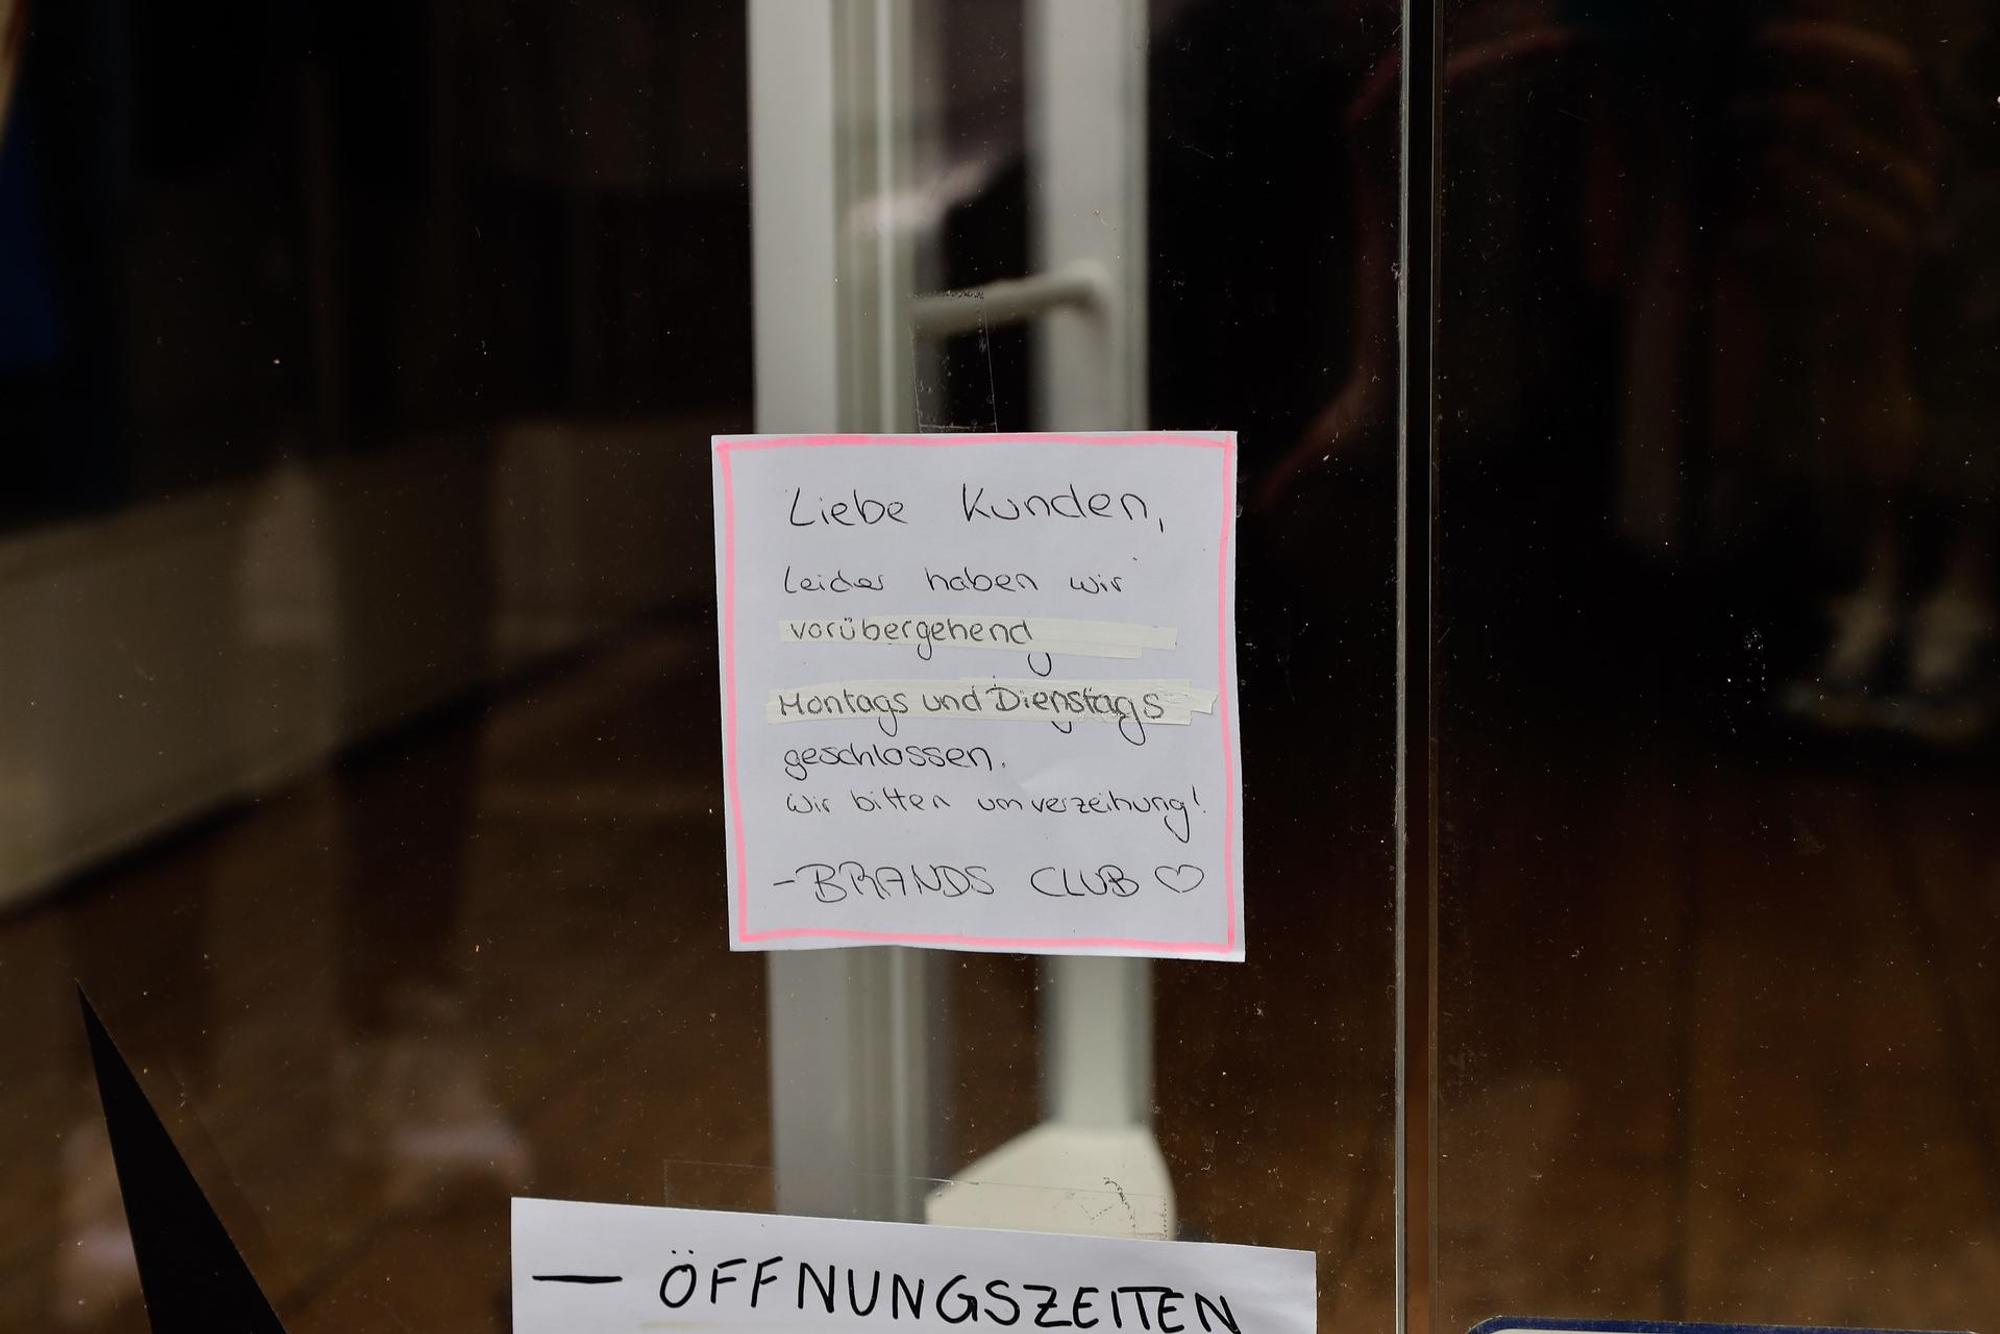 Liebe Kunden,
leider haben wir
vorübergehend
Montags und Dienstags
geschlossen.
Wir bitten um verzeihung!
- BRANDS CLUB ♡
— ÖFFNUNGSZEITEN